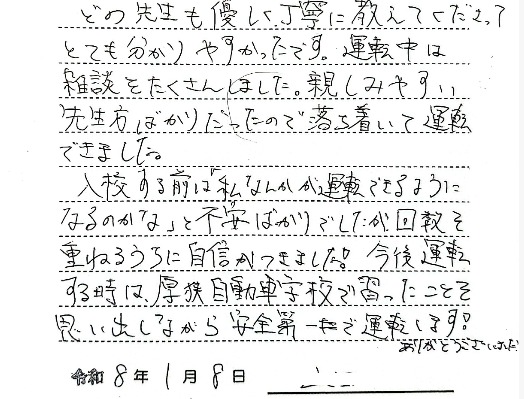 どの先生も優しく、丁寧に教えてくださって
とても分かりやすかったです。運転中は
雑談をたくさんしました。親しみやすい
先生方ばかりだったので落ち着いて運転
できました。
入校する前は「私なんかが運転できるように
なるのかな」と不安ばかりでしたが回数を
重ねるうちに自信がつきました！今後運転
する時は、厚狭自動車学校で習ったことを
思い出しながら安全第一で運転します！
ありがとうございました
令和8年1月8日